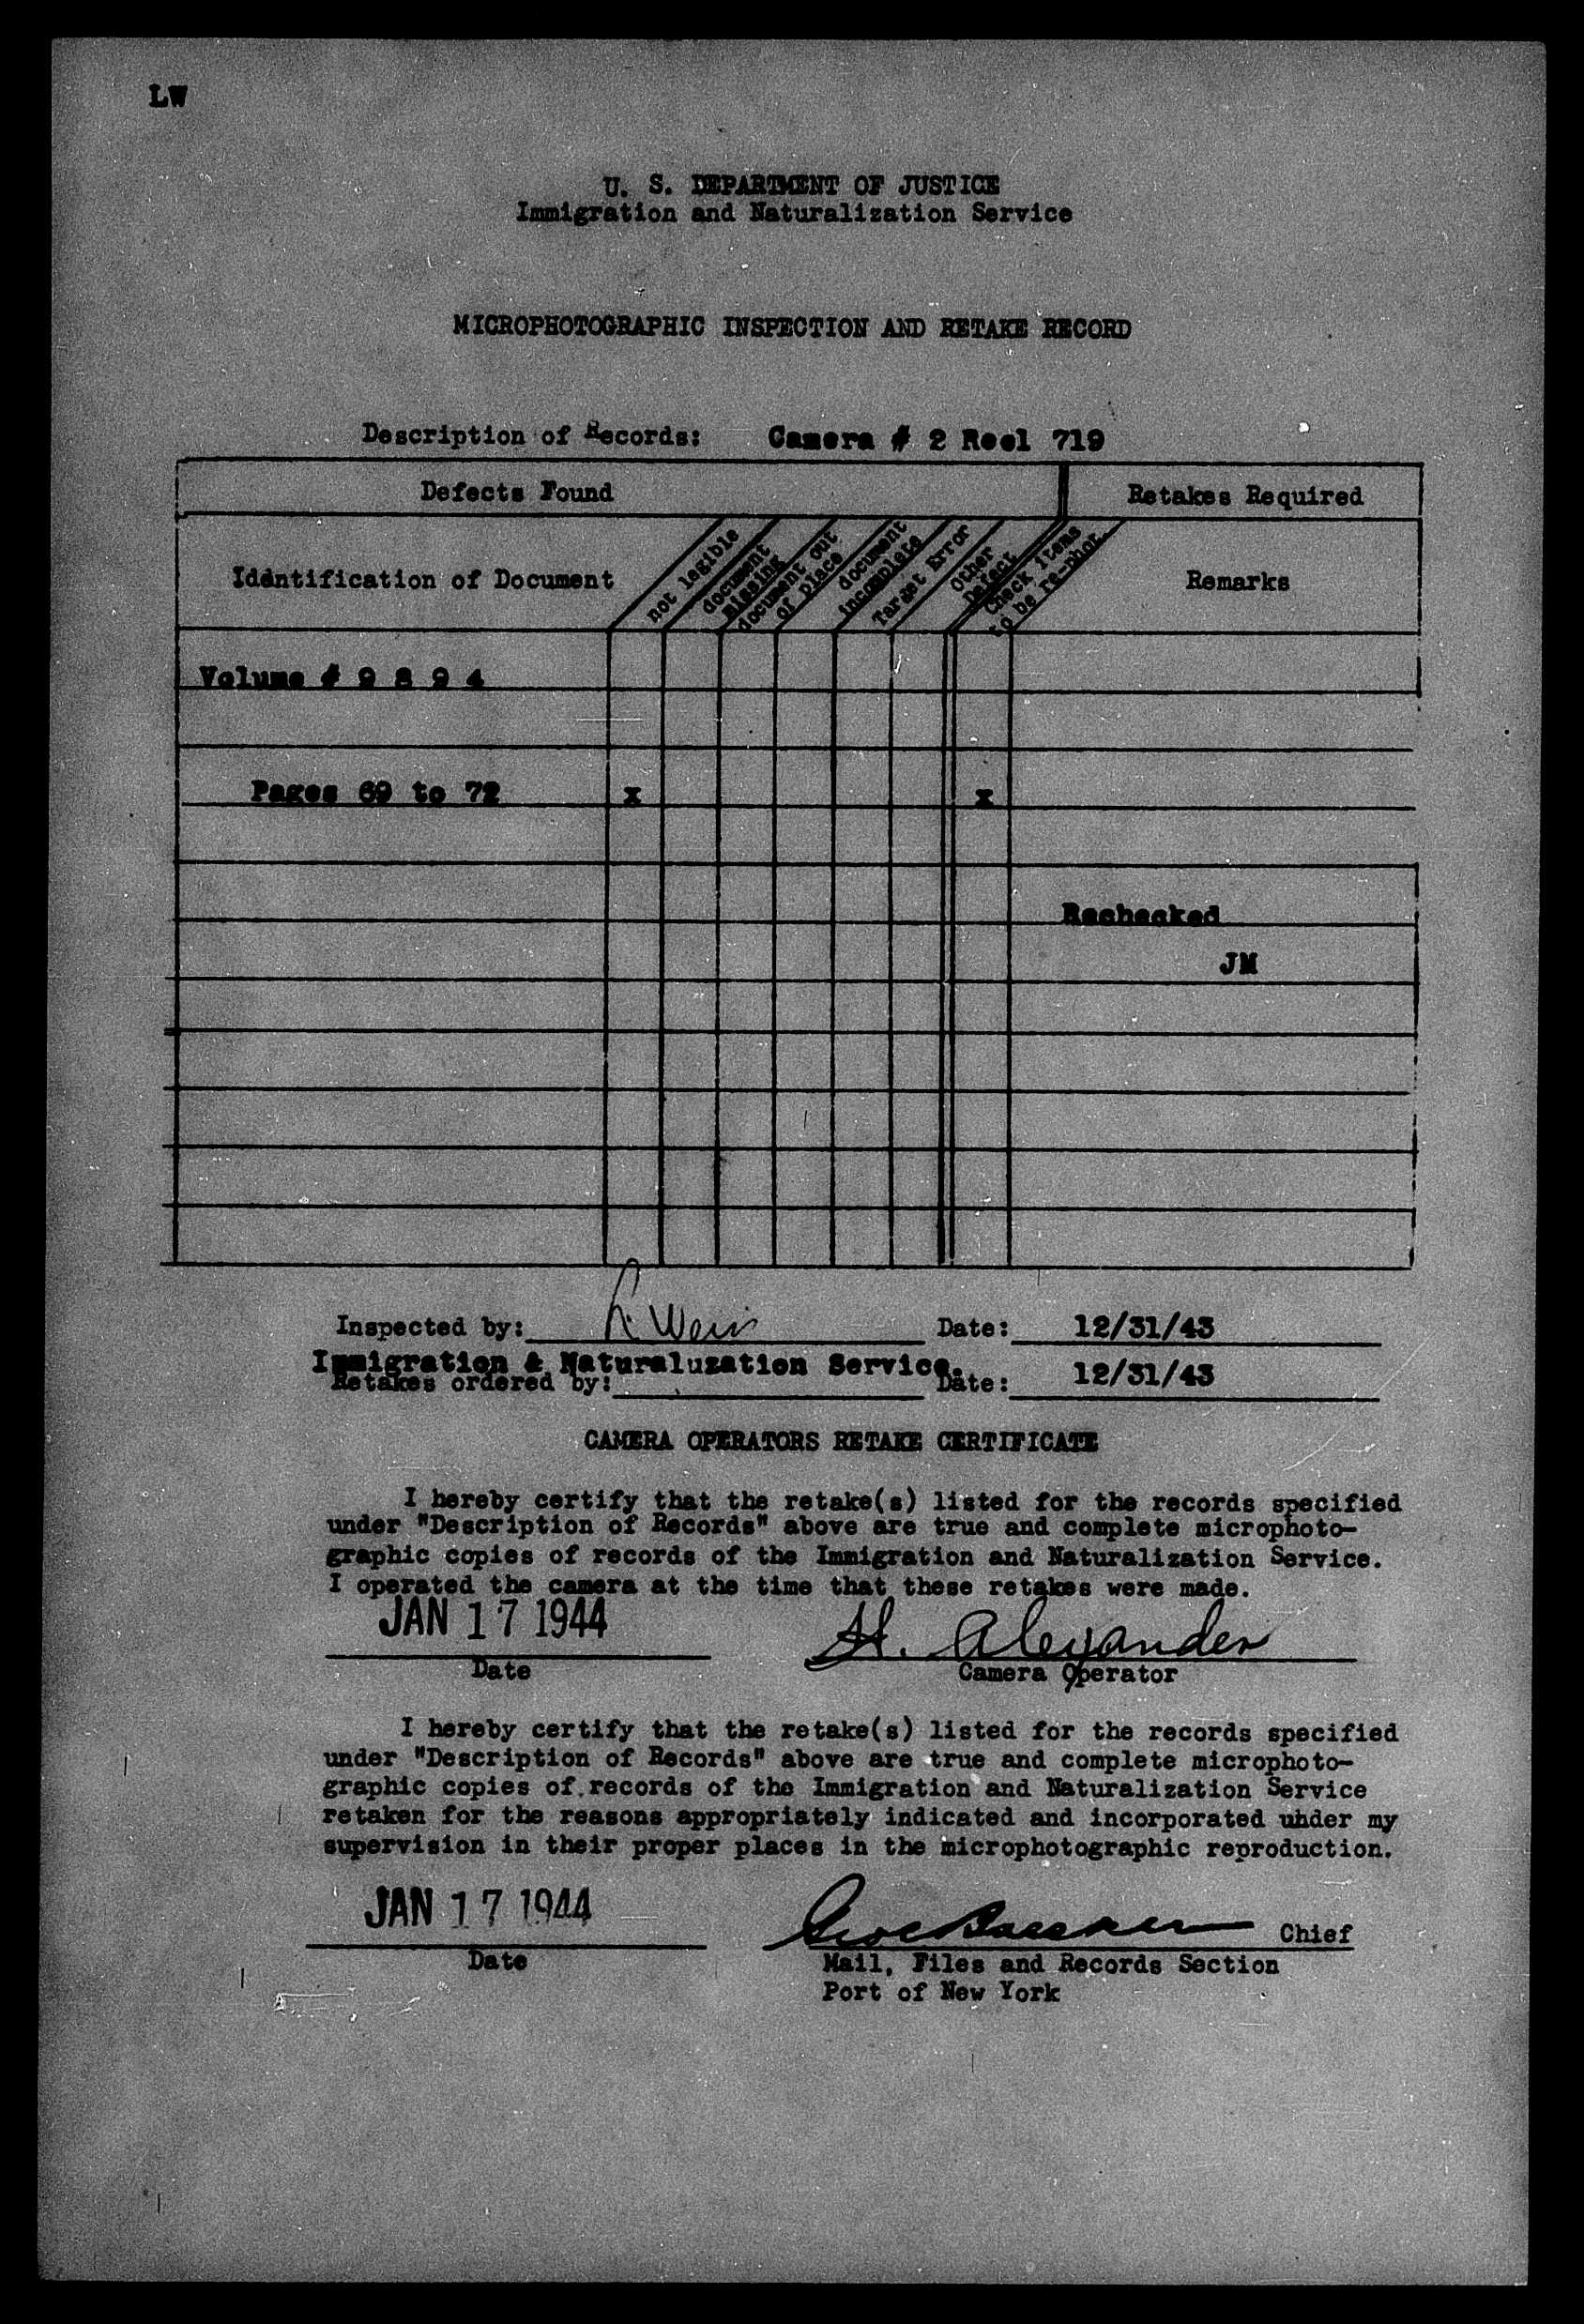 LW
U. S. DEPARTMENT OF JUSTICE
Immigration and Naturalization Service
MICROPHOTOGRAPHIC INSPECTION AND RETAKE RECORD
Description of Records: Camera # 2 Reel 719
Defects Found
Retakes Required
Identification of Document
not legible
document
missing
document out
of place
document
incomplete
Target Error
Other
Defect
Check Items
to be re-phot.
Remarks
Volume # 9 8 9 4
Pages 69 to 72 x x
Rechecked
JM
Inspected by: Date: 12/31/43
Immigration & Naturaluzation Service.
Retakes ordered by: Date: 12/31/43
CAMERA OPERATORS RETAKE CERTIFICATE
I hereby certify that the retake(s) listed for the records specified
under "Description of Records" above are true and complete microphoto-
graphic copies of records of the Immigration and Naturalization Service.
I operated the camera at the time that these retakes were made.
JAN 17 1944 H. Alexander
Date Camera Operator
I hereby certify that the retake(s) listed for the records specified
under "Description of Records" above are true and complete microphoto-
graphic copies of records of the Immigration and Naturalization Service
retaken for the reasons appropriately indicated and incorporated under my
supervision in their proper places in the microphotographic reproduction.
JAN 17 1944 Chief
Date Mail, Files and Records Section
Port of New York